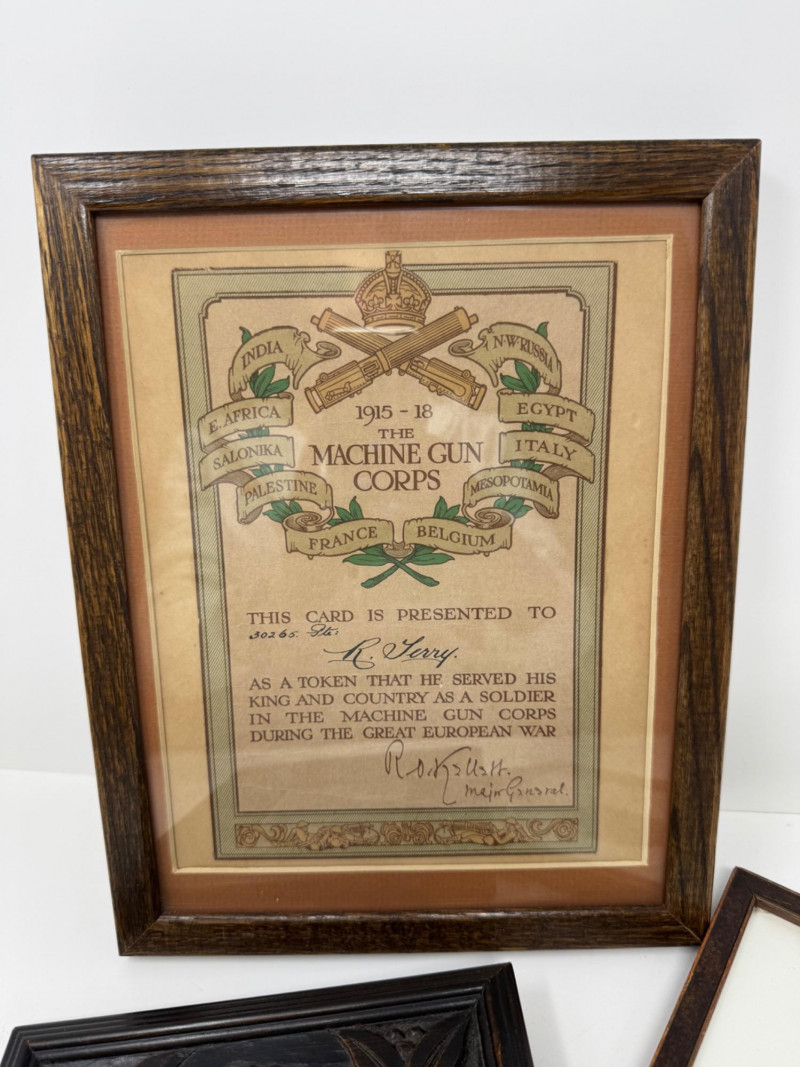 INDIA
N-W-RUSSIA
E. AFRICA
EGYPT
SALONIKA
ITALY
PALESTINE
MESOPOTAMIA
FRANCE
BELGIUM
1915 - 18
THE
MACHINE GUN
CORPS
THIS CARD IS PRESENTED TO
30265. Pte.
R. Terry.
AS A TOKEN THAT HE SERVED HIS
KING AND COUNTRY AS A SOLDIER
IN THE MACHINE GUN CORPS
DURING THE GREAT EUROPEAN WAR
R. A. Kellett.
Major General.